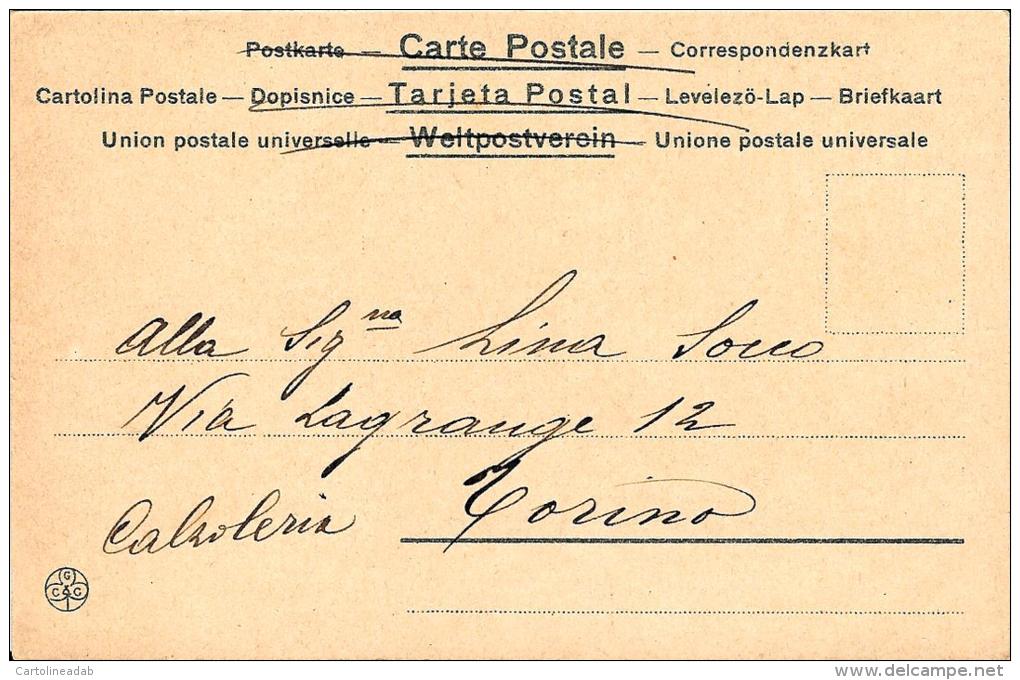 Postkarte — Carte Postale — Correspondenzkart
Cartolina Postale — Dopisnice — Tarjeta Postal — Levelezö-Lap — Briefkaart
Union postale universelle — Weltpostverein — Unione postale universale
Alla Sig.na Lina Socco
Via Lagrange 12
Calzoleria Torino
G
C C
Cartolineadab
delcampe.net